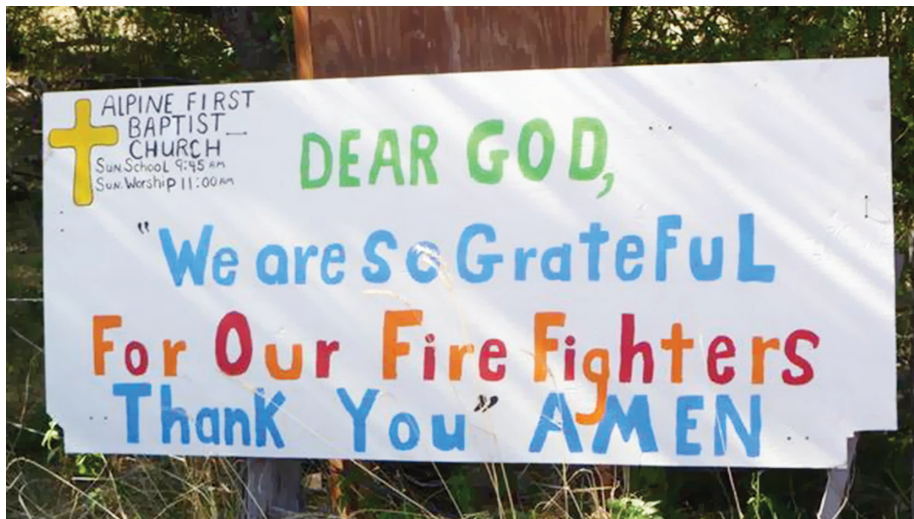 ALPINE FIRST
BAPTIST
CHURCH
Sun. School 9:45 AM
Sun. Worship 11:00 AM
DEAR GOD,
"We are so GrateFuL
For Our Fire Fighters
Thank You" AMEN